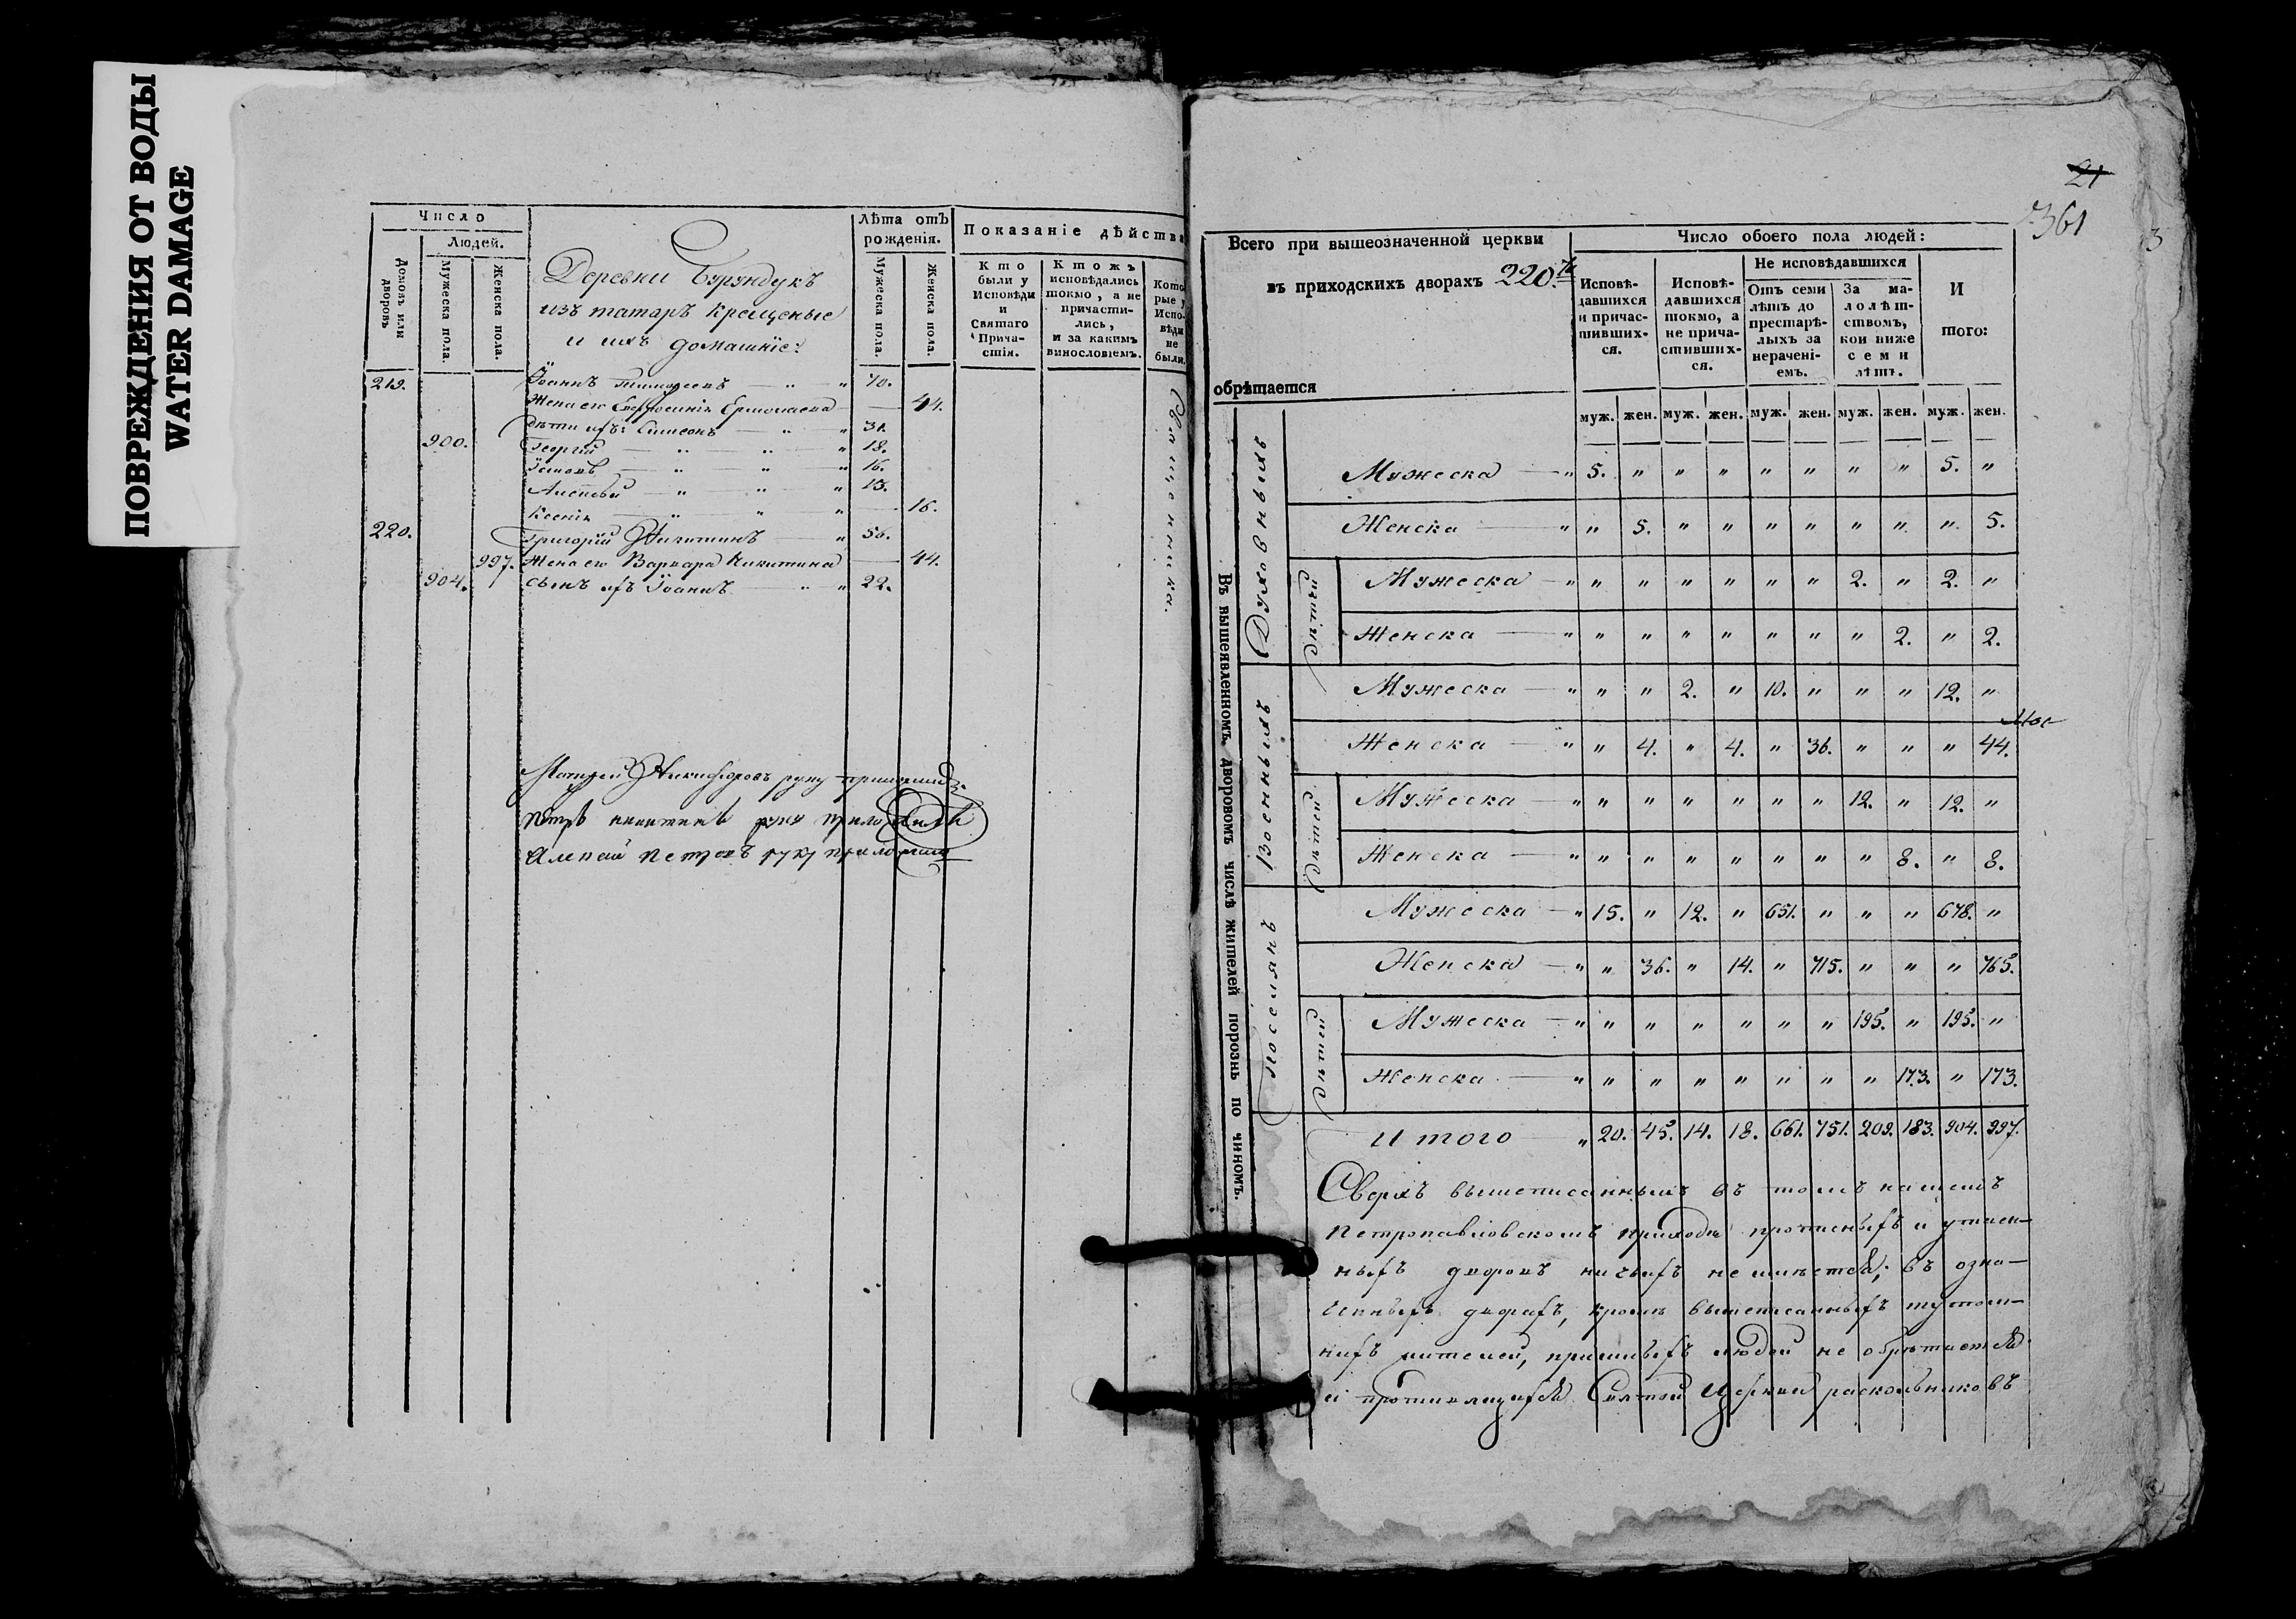 ПОВРЕЖДЕНИЯ ОТ ВОДЫ
WATER DAMAGE
Число
Людей.
Домовъ или дворовъ
Мужеска пола.
Женска пола.
Деревни Бурундукъ
изъ татаръ крещеные
и ихъ домашніе:
Лѣта отъ рожденія.
Мужеска пола.
Женска пола.
Показаніе дѣйства
Кто были у Исповѣди и Святаго Причастія.
Ктожъ исповѣдались токмо, а не причастились, и за какимъ винословіемъ.
Которые у Исповѣди не были.
219. Іоаннъ Тимофеевъ — " " 70.
Жена его Евфросинія Ермолаева — 44.
дѣти ихъ: Симеонъ — " " 31.
900. Георгій — " " " 18.
" " " 16.
Алексѣй — " " " 13.
Ксенія — " " " 16.
220. Григорій Никитинъ — " 56.
997. Жена его Варвара Никитина — 44.
904. сынъ ихъ Іоаннъ — " " 22.
Священника.
Матфей Никифоровъ руку приложилъ
Петръ никитинъ руку приложилъ
Петровъ руку приложилъ
21
361
3
Всего при вышеозначенной церкви
въ приходскихъ дворахъ 220.
обрѣтается
Число обоего пола людей:
Исповѣдавшихся и причастившихся.
Исповѣдавшихся токмо, а не причастившихся.
Не исповѣдавшихся
Отъ семи лѣтъ до престарѣлыхъ за нерачені-емъ.
За малолѣтствомъ, кои ниже семи лѣтъ.
И того:
муж. жен. муж. жен. муж. жен. муж. жен. муж. жен.
Въ вышеявленномъ дворовомъ числѣ жителей порознь по чиномъ.
Духовныхъ
Мужеска — " 5. " " " " " " " 5. "
Женска — " " 5. " " " " " " " 5.
Дѣтини
Мужеска — " " " " " " " 2. " 2. "
Женска — " " " " " " " " 2. " 2.
Военныхъ
Мужеска — " " " 2. " 10. " " " 12. "
Женска — " " 4. " 4. " 36. " " " 44.
Мужеска — " " " " " " " 12. " 12. "
Женска — " " " " " " " " 8. " 8.
поселянъ
Мужеска — " 15. " 12. " 651. " " " 678. "
Женска — " " 36. " 14. " 715. " " " 765.
Мужеска — " " " " " " " 195. " 195. "
Женска — " " " " " " " " 173. " 173.
и того — " 20. 45. 14. 18. 661. 751. 209. 183. 904. 997.
Сверхъ вышеписанныхъ въ томъ нашемъ
Петропавловскомъ приходѣ прописныхъ и утаен-
ныхъ дворовъ ничьихъ не имѣется; въ озна-
ченныхъ дворахъ, кромѣ вышеписанныхъ тутош-
нихъ жителей, пришлыхъ людей не обрѣтается
и противящихся Святой Церкви раскольниковъ